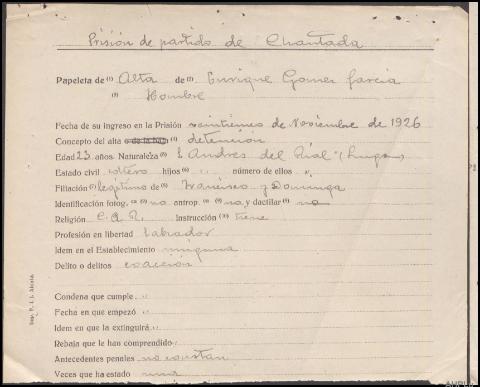 Prisión de partido de Chantada
Papeleta de (1) Alta de (2) Enrique Gomez Garcia
(3) Hombre
Fecha de su ingreso en la Prisión de Noviembre de 1926
Concepto del alta o de la baja (4) detención
Edad 23 años. Naturaleza (5) S. Andres del Rial (Lugo)
Estado civil soltero hijos (6) " número de ellos "
Filiación (7) legitimo de (8) Francisco y Dominga
Identificación fotog. (9) no antrop. (9) no y dactilar (9) no
Religión C.A.R. instrucción (10) tiene
Profesión en libertad labrador
Idem en el Establecimiento ninguna
Delito o delitos coacción
Condena que cumple "
Fecha en que empezó "
Idem en que la extinguirá "
Rebaja que le han comprendido "
Antecedentes penales no constan
Veces que ha estado una